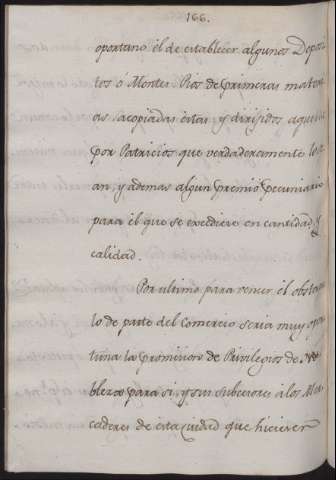 166.
oportuno el de establecer algunos Deposi
tos ó Montes Pios de primeras mater
as, acopiadas estas y dirijidos aquell
por Patricios que verdaderamente lo se
an, y ademas algun premio pecuniario
para él que se excediere en cantidad y
calidad.
Por ultimo para vencer el obstacu
lo de parte del Comercio seria muy opor
tuna la promision de Privilegios de No
bleza para si, y sus subcesores á los Mer
caderes de esta ciudad que hicieren